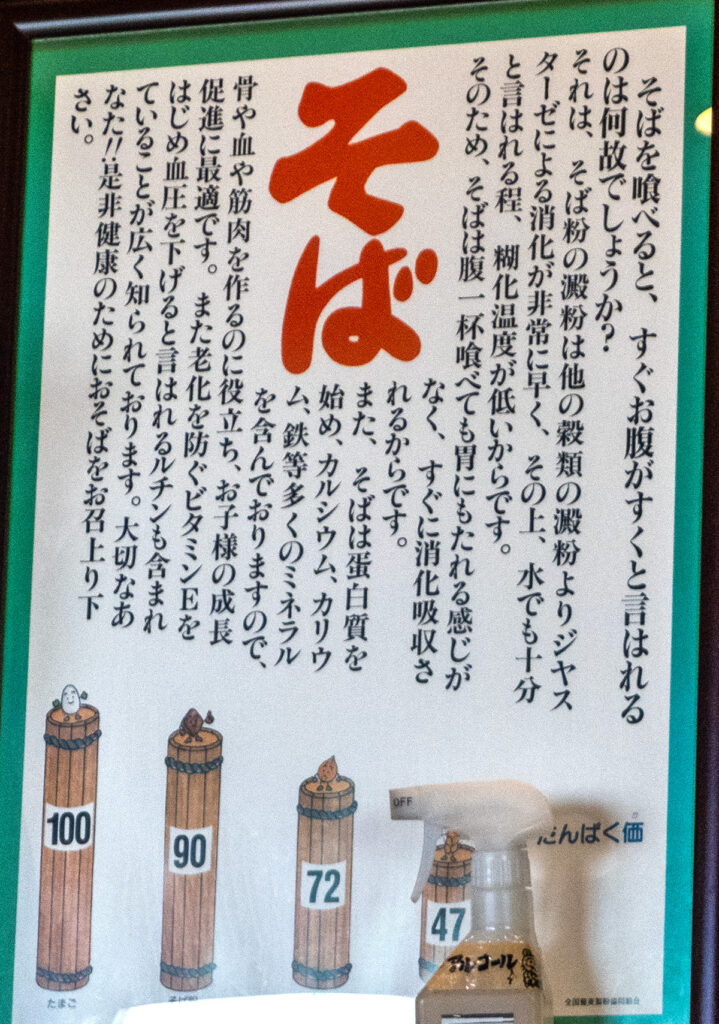 そば
そばを喰べると、すぐお腹がすくと言はれる
のは何故でしょうか?
それは、そば粉の澱粉は他の穀類の澱粉よりジヤス
ターゼによる消化が非常に早く、その上、水でも十分
と言はれる程、糊化温度が低いからです。
そのため、そばは腹一杯喰べても胃にもたれる感じが
なく、すぐに消化吸収さ
れるからです。
また、そばは蛋白質を
始め、カルシウム、カリウ
ム、鉄等多くのミネラル
を含んでおりますので、
骨や血や筋肉を作るのに役立ち、お子様の成長
促進に最適です。また老化を防ぐビタミンEを
はじめ血圧を下げると言はれるルチンも含まれ
ていることが広く知られております。大切なあ
なた!!是非健康のためにおそばをお召上り下
さい。
たんぱく価
100
90
72
47
たまご
OFF
アルコール